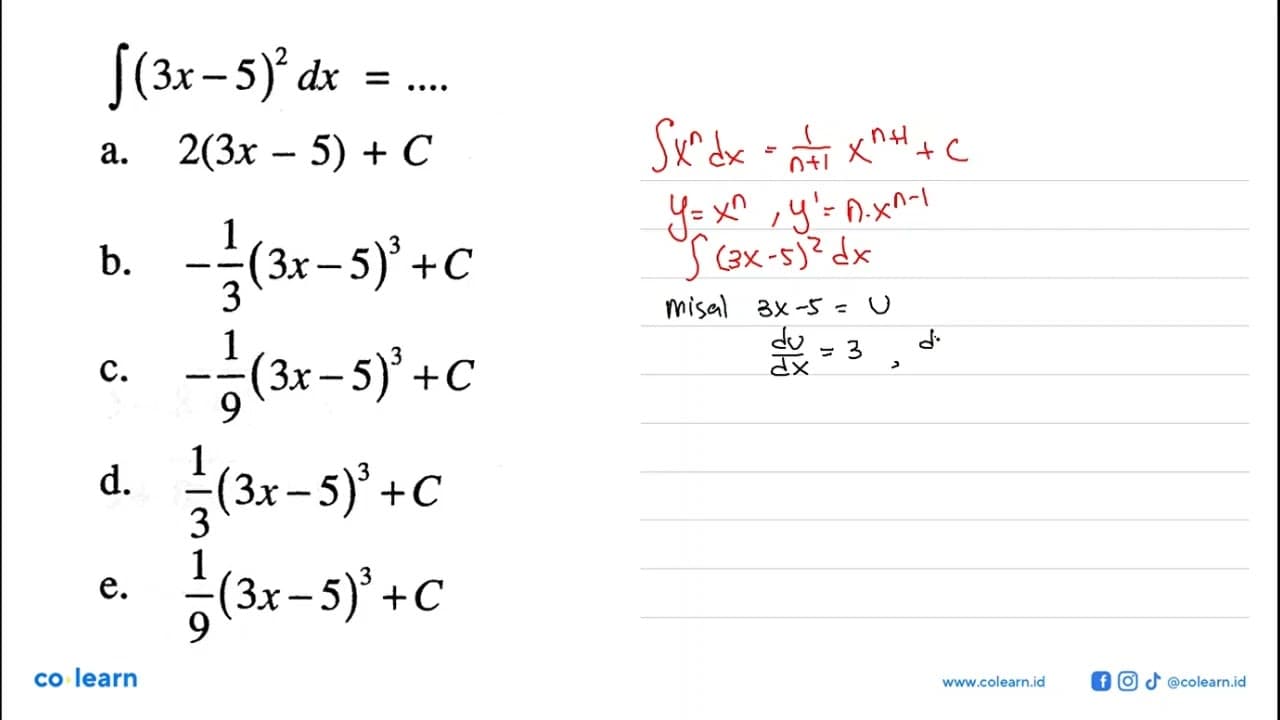 ∫(3x – 5)² dx = ....
a. 2(3x – 5) + C
b. –1/3(3x – 5)³ + C
c. –1/9(3x – 5)³ + C
d. 1/3(3x – 5)³ + C
e. 1/9(3x – 5)³ + C
∫xⁿ dx = 1/(n+1) xⁿ⁺¹ + C
y = xⁿ , y' = n.xⁿ⁻¹
∫(3x-5)² dx
misal 3x-5 = U
du/dx = 3 , d
co learn
www.colearn.id
@colearn.id